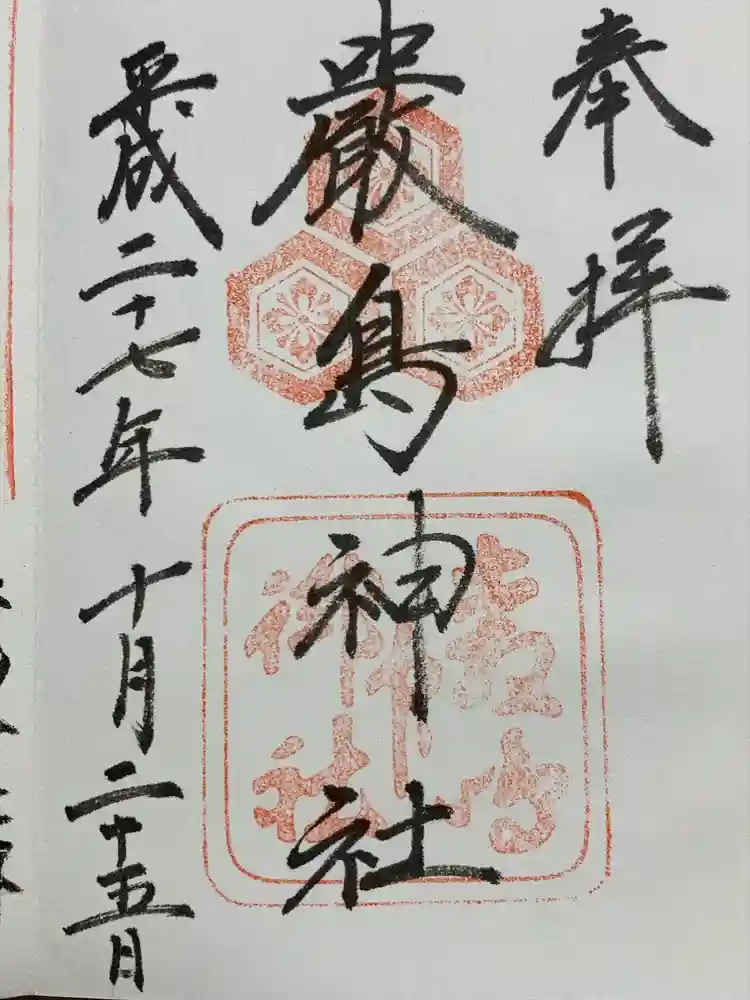 奉拝
嚴島神社
平成二十七年十月二十五日